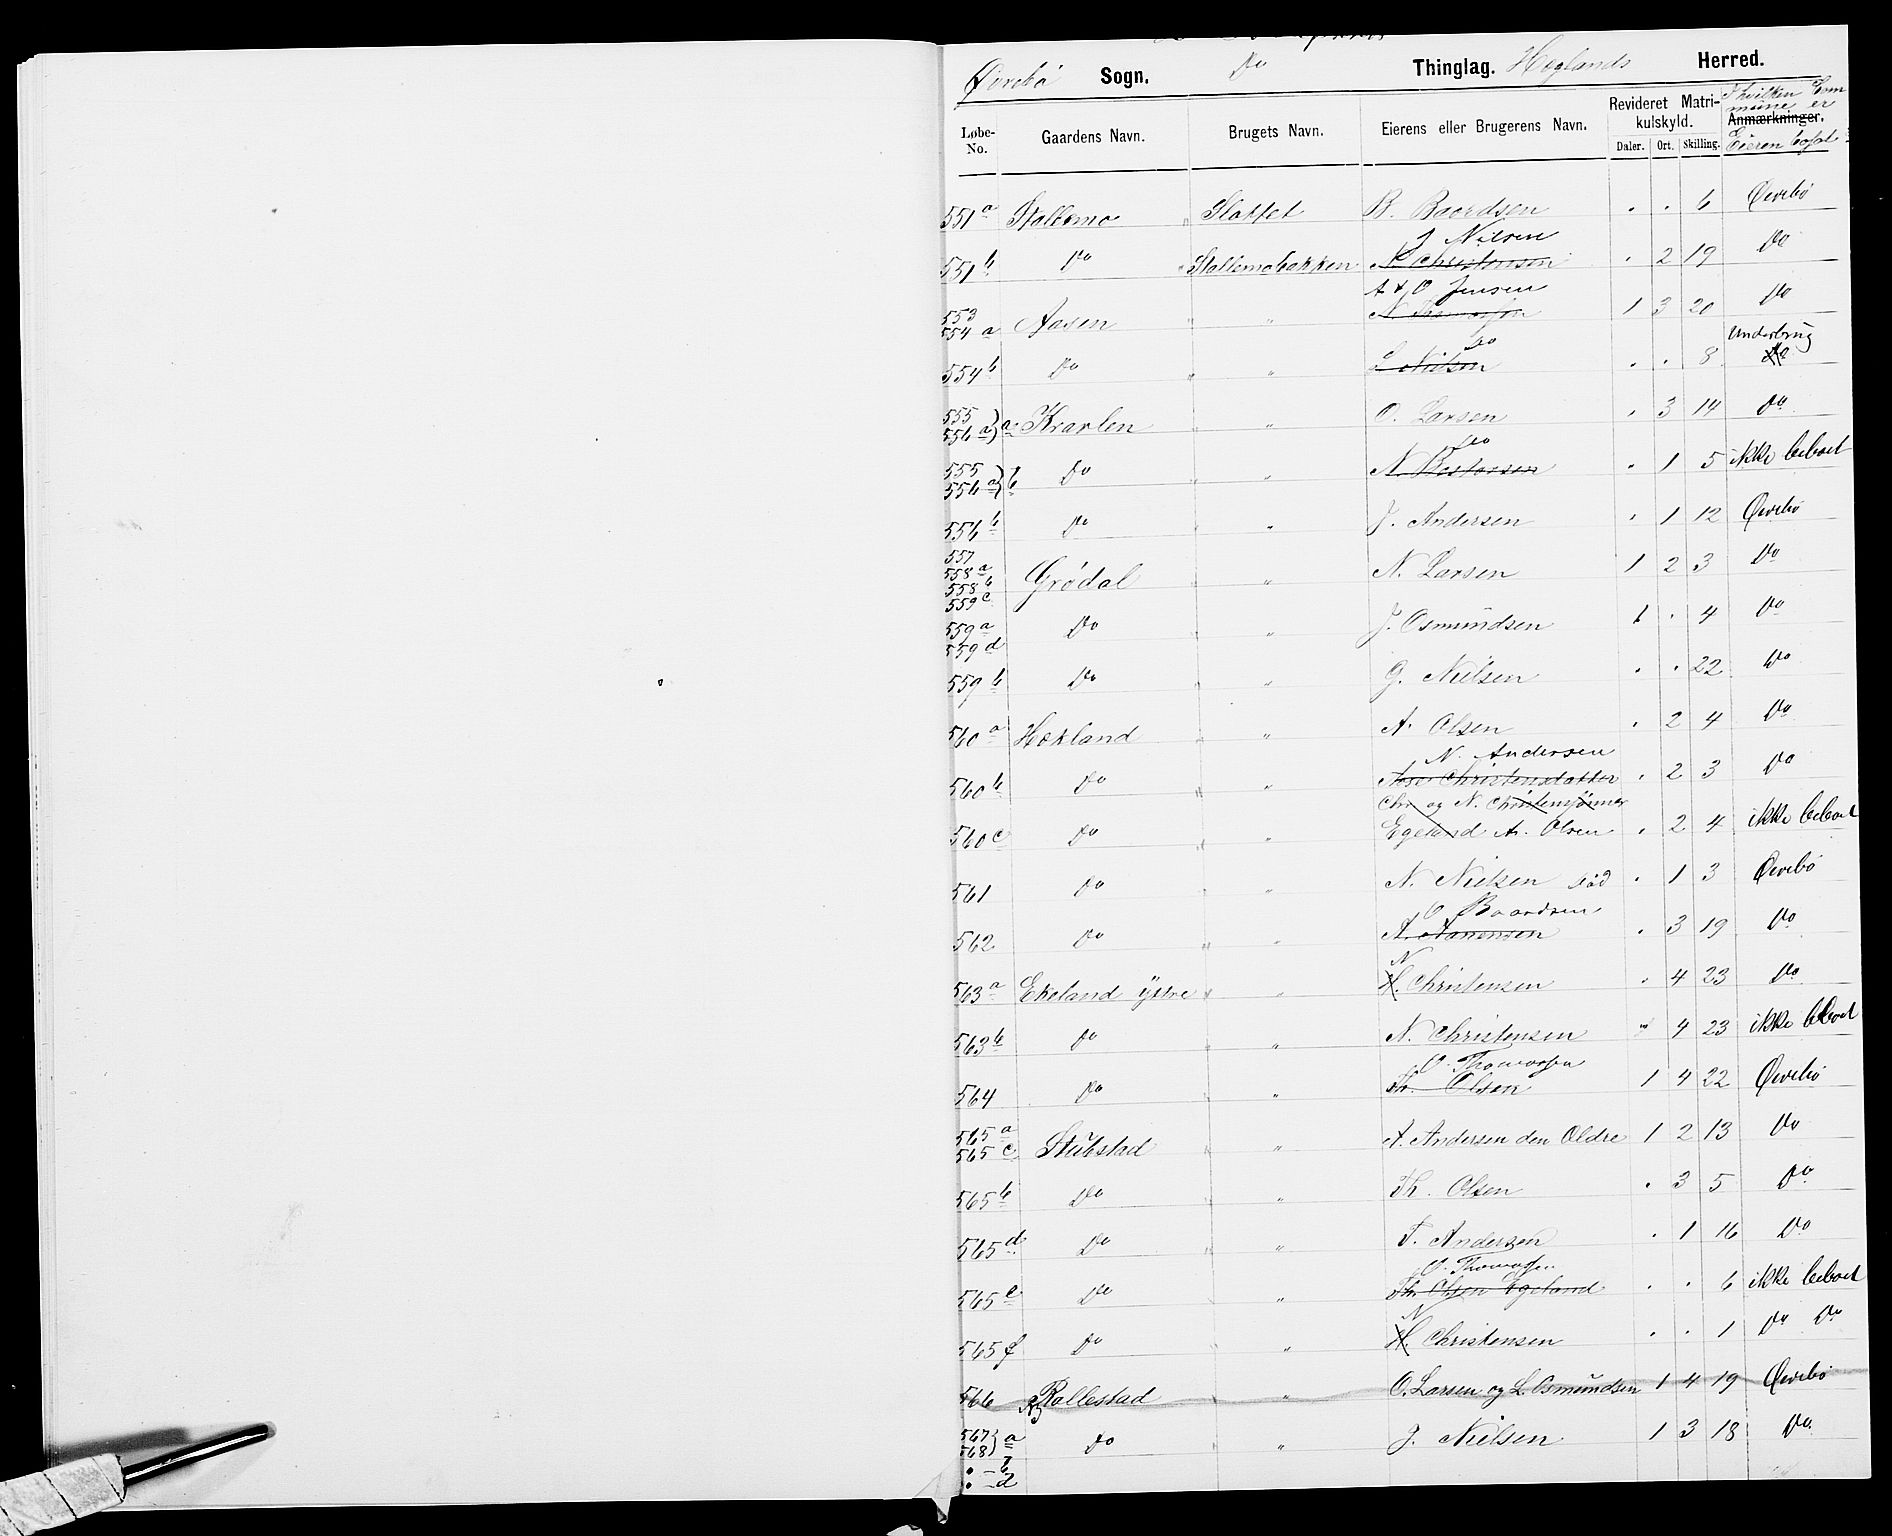 Øvrebö Sogn. Do Thinglag. Hæglands Herred.
Løbe-No. Gaardens Navn. Brugets Navn. Eierens eller Brugerens Navn. Revideret Matrikulskyld. Daler. Ort. Skilling. I hvilken Commune er Anmærkninger. Eieren bosat
551 a Stallemo " Slottet B. Baardsen . . 6 Øvrebö
J Nilsen
551 b Do " Stallemobakken N Christensen . 2 19 Do
A & O Jensen
553 554 a Aasen " " N. Thomassen 1 3 20 Do
Do Underbrug
554 b Do " " L Nilsen . . 8 Do
555 556 a) a Kravlen " " O. Larsen . 3 14 Do
Do
555 556 a) b Do " " N. . 1 5 ikke beboet
556 b Do " " J. Andersen . 1 12 Øvrebö
557 558 a 558 b 559 c Grödal " " N. Larsen 1 2 3 Do
559 a 559 d Do " " J. Osmundsen 1 . 4 Do
559 b Do " " G. Nielsen . . 22 Do
560 a Hækland " " A. Olsen . 2 4 Do
N. Andersen
560 b Do " " Aase Christensdatter . 2 3 Do
Chr og N. Christensönner
560 c Do " " Egeland A. Olsen . 2 4 ikke beboet
561 Do " " N. Nielsen död . 1 3 Øvrebö
O Baardsen
562 Do " " A. Aanensen . 3 19 Do
N
563 a Ekeland ÿtre " " H. Christensen . 4 23 Do
563 b Do " " N. Christensen " 4 23 ikke beboet
O. Thomassen
564 Do " " Th. Olsen 1 4 22 Øvrebö
565 a 565 c Stubstad " " A. Andersen den Ældre 1 2 13 Do
565 b Do " " Th. Olsen . 3 5 Do
565 d Do " " T. Andersen . 1 16 Do
O. Thomassen
565 e Do " " Th. Olsen Egeland . . 6 ikke beboet
N
565 f Do " " H. Christensen . . 1 Do Do
566 Rallestad " " O. Larsen og L. Osmundsen 1 4 19 Øvrebö
567 568) a Do " " J. Nielsen 1 3 18 Do
" - b
" - d